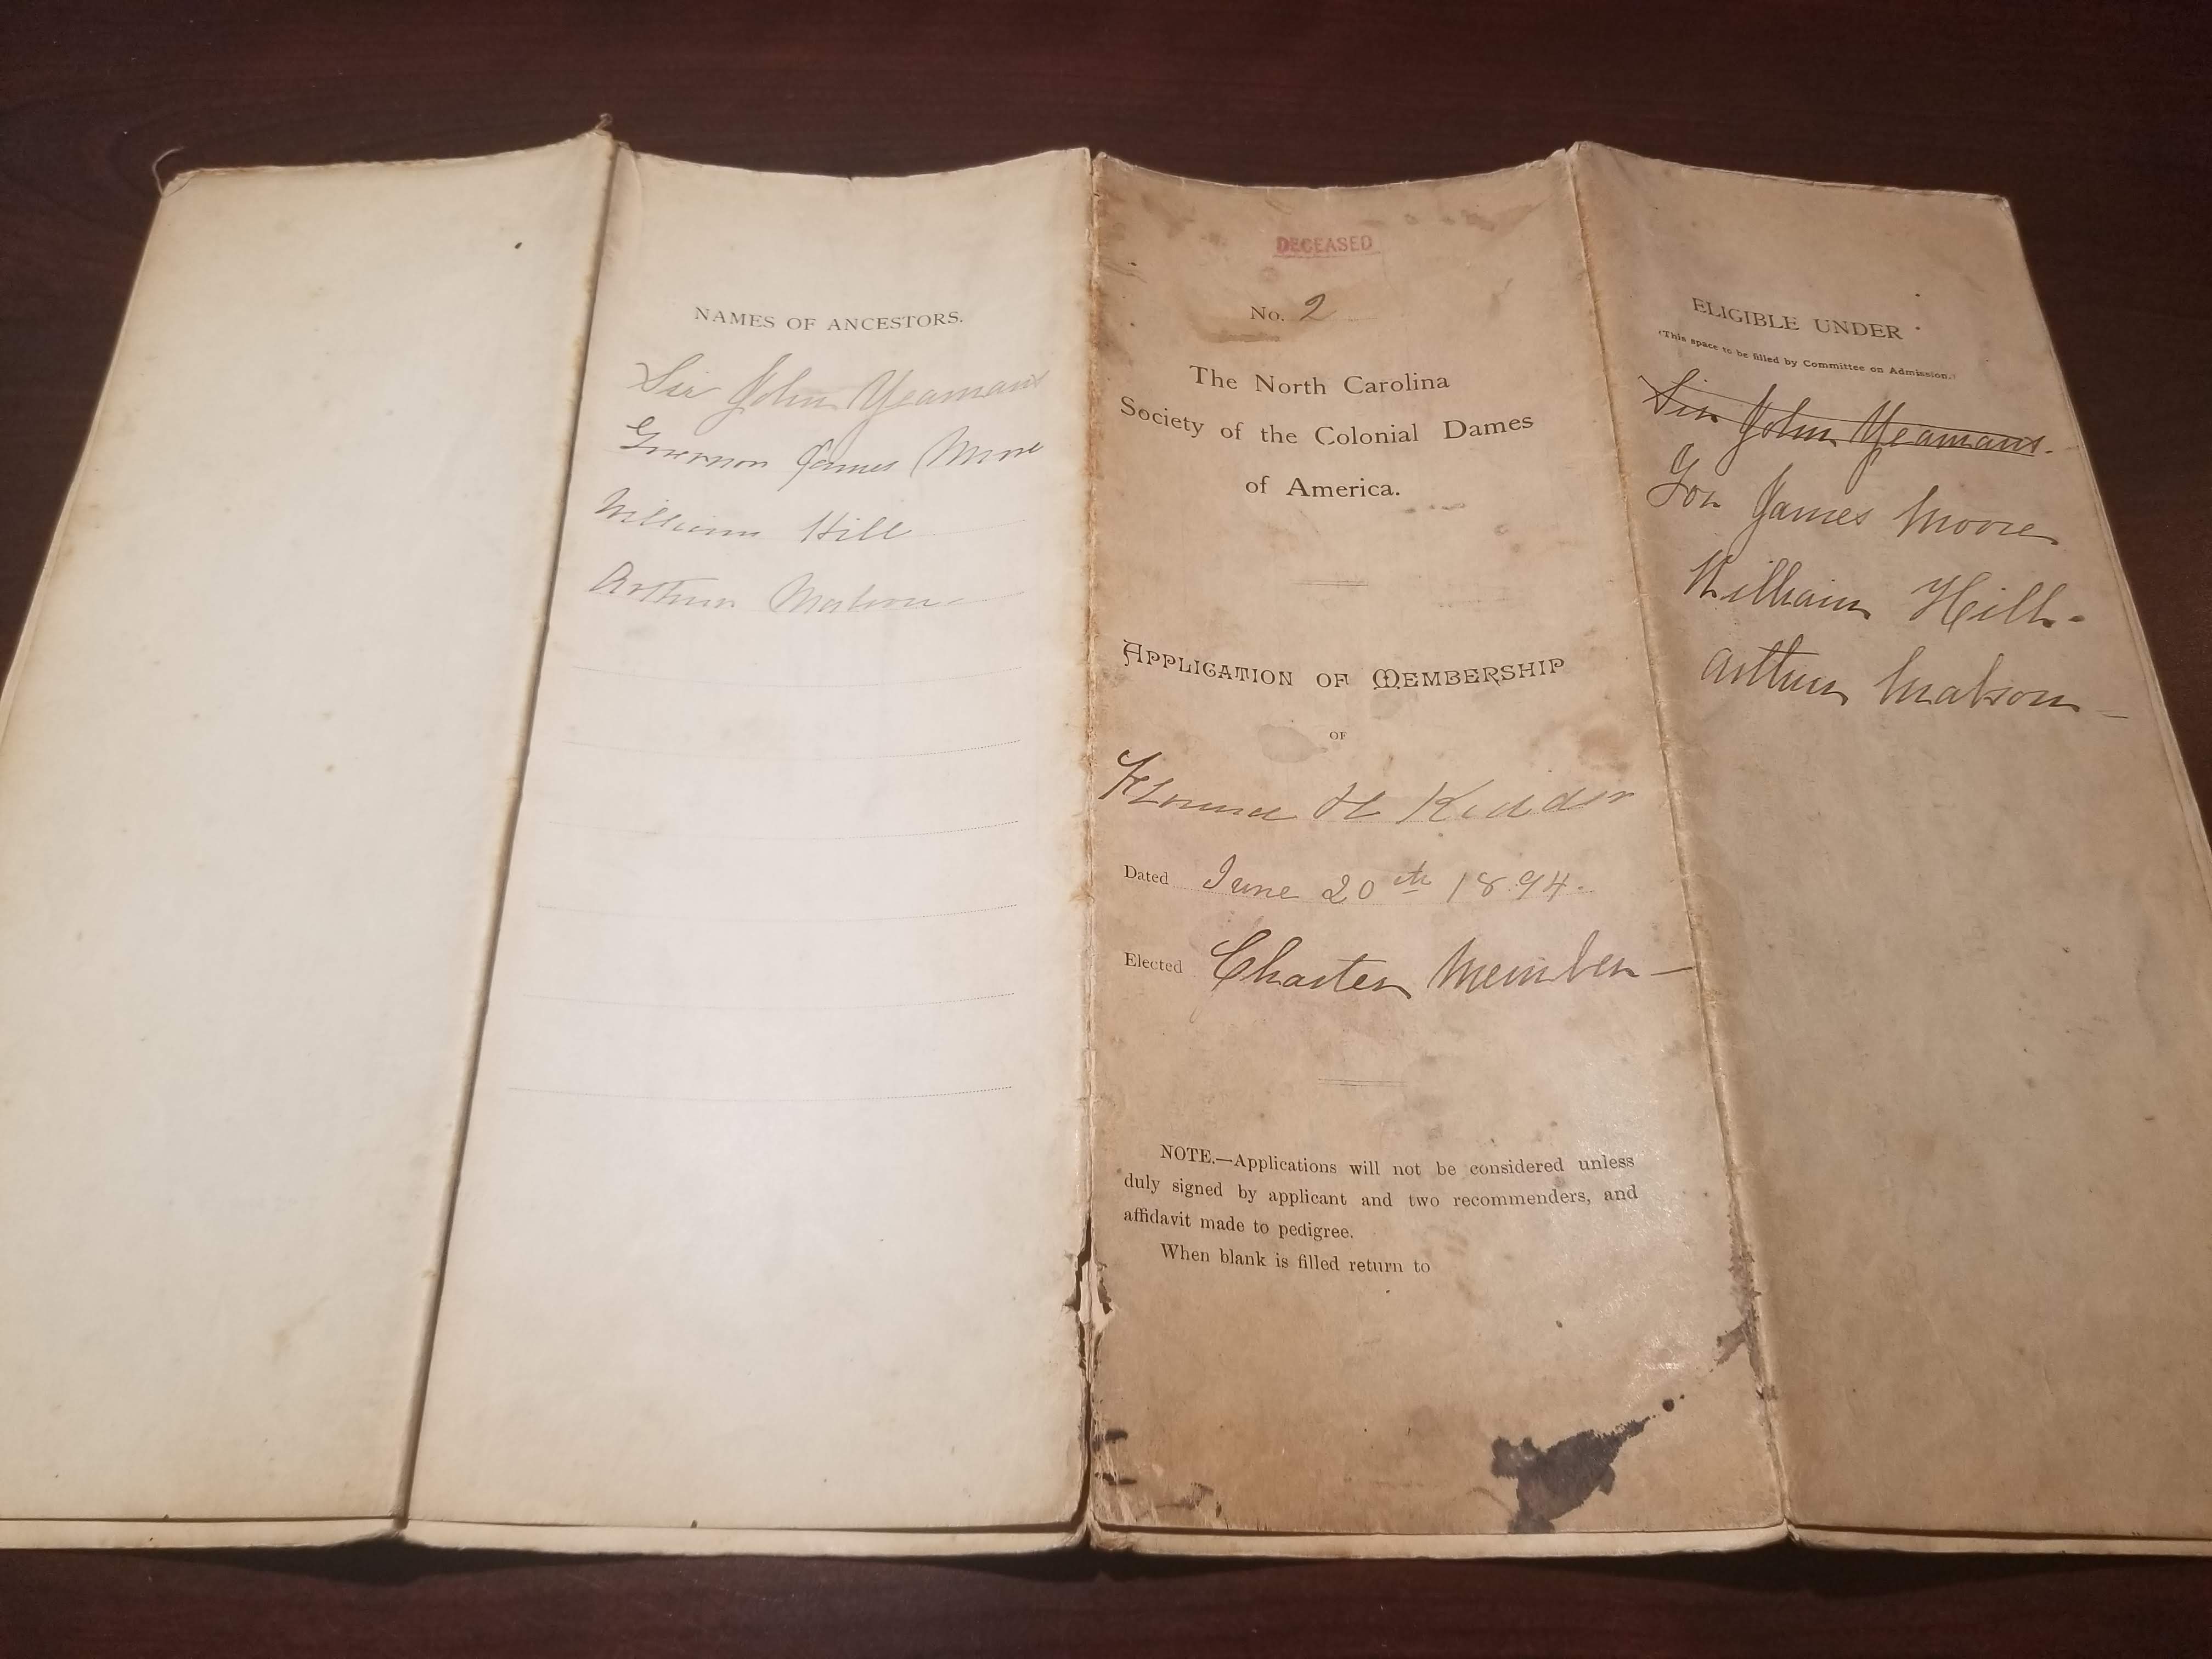 NAMES OF ANCESTORS.
Sir John Yeamans
Governor James Moore
William Hill
Arthur Mabson
DECEASED
No. 2
The North Carolina
Society of the Colonial Dames
of America.
APPLICATION OF MEMBERSHIP
OF
Florence H Kidder
Dated June 20th 1894.
Elected Charter Member
NOTE.—Applications will not be considered unless
duly signed by applicant and two recommenders, and
affidavit made to pedigree.
When blank is filled return to
ELIGIBLE UNDER
(This space to be filled by Committee on Admission.)
Sir John Yeamans.
Gov James Moore
William Hill-
Arthur Mabson-